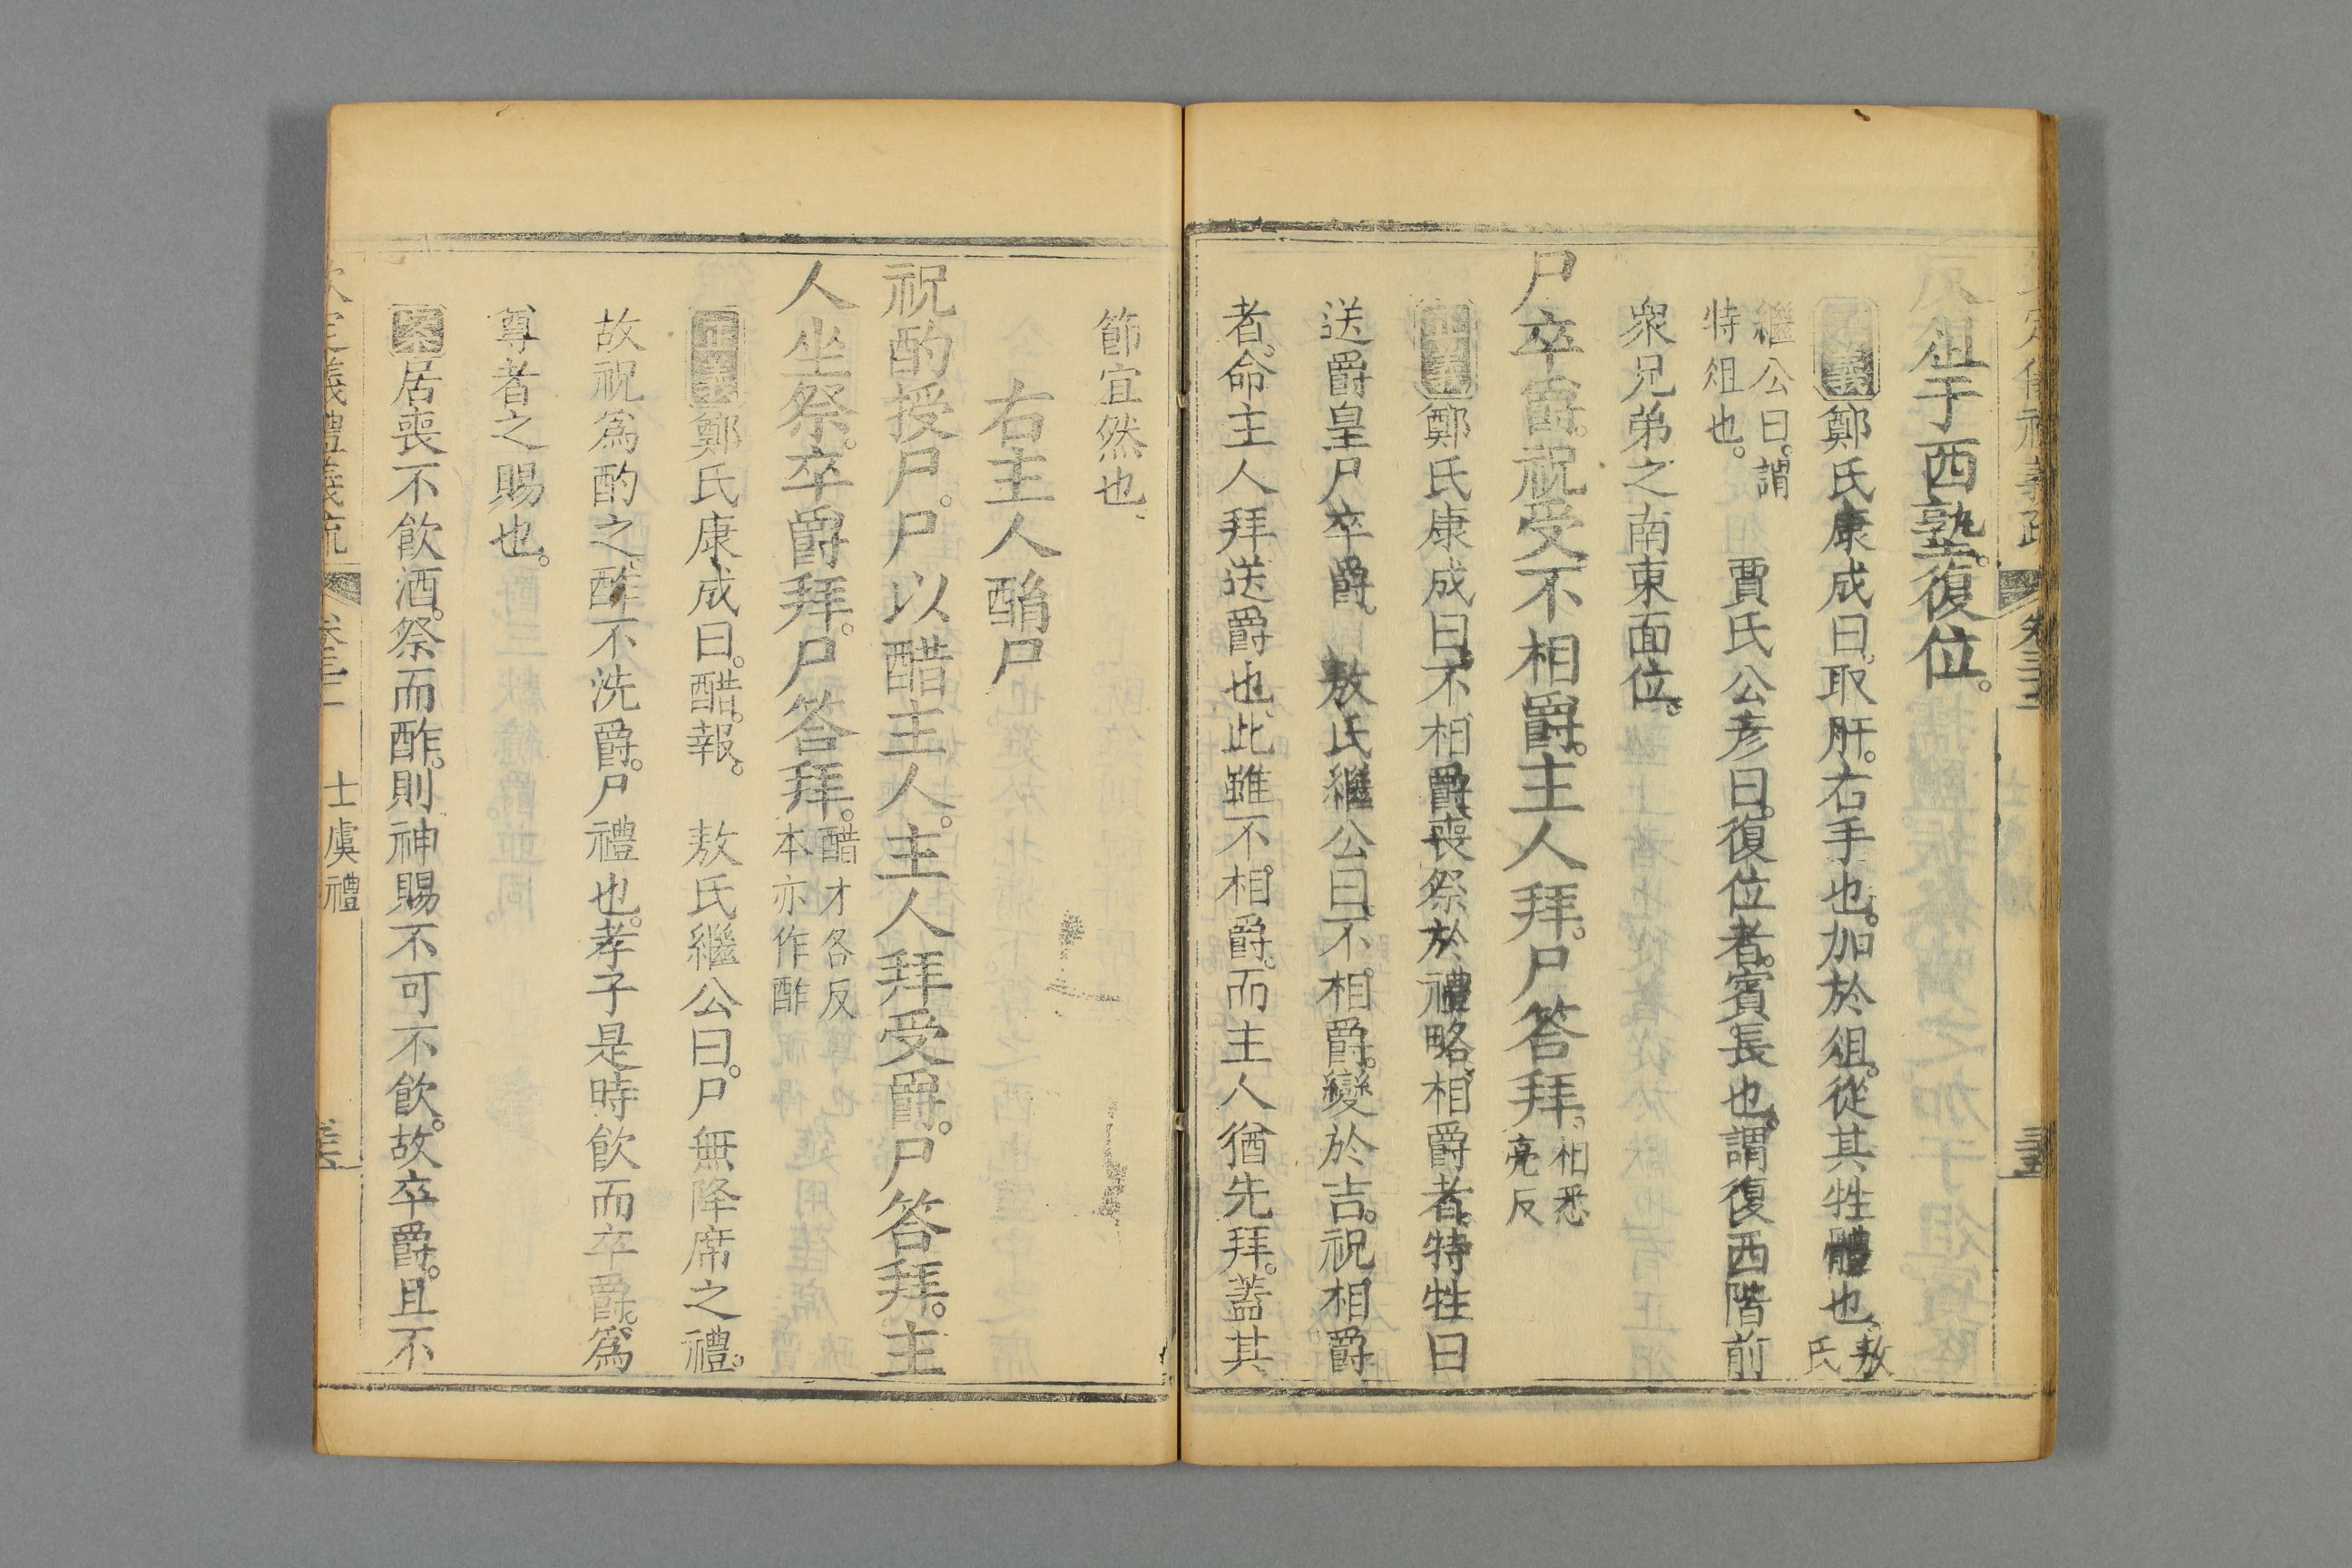 反俎于西塾。復位。
正義鄭氏康成曰。取肝。右手也。加於俎。從其牲體也。敖氏
繼公曰。謂特俎也。 賈氏公彥曰。復位者。賓長也。謂復西階前
衆兄弟之南東面位。
尸卒爵。祝受不相爵。主人拜。尸答拜。相悉亮反
正義鄭氏康成曰。不相爵。喪祭於禮略。相爵者。特牲曰
送爵皇尸卒爵。 敖氏繼公曰。不相爵。變於吉。祝相爵
者。命主人拜送爵也。此雖不相爵。而主人猶先拜。蓋其
節宜然也。
右主人酳尸
祝酌授尸。尸以醋主人。主人拜受爵。尸答拜。主
人坐祭。卒爵拜。尸答拜。醋才各反本亦作酢
正義鄭氏康成曰。醋。報。 敖氏繼公曰。尸無降席之禮。
故祝爲酌之。酢不洗爵。尸禮也。孝子是時飲而卒爵。爲
尊者之賜也。
案居喪不飲酒。祭而酢。則神賜不可不飲。故卒爵。且不
士虞禮